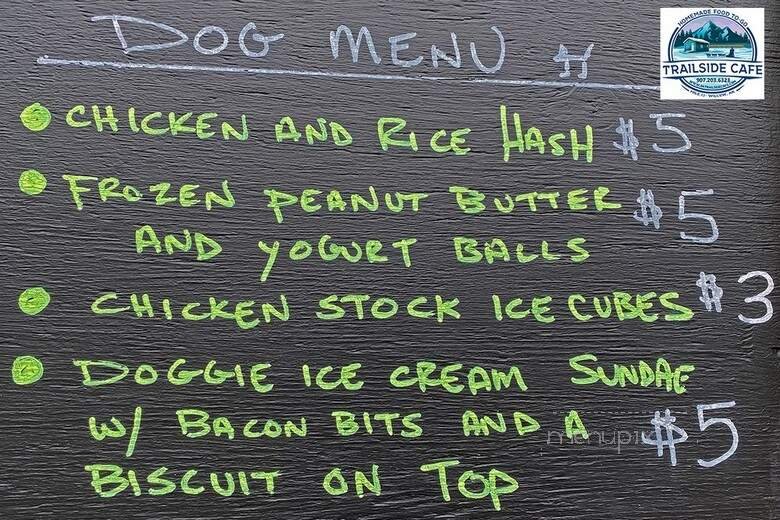 DOG MENU
HOMEMADE FOOD TO GO
TRAILSIDE CAFE
907.203.6323
CHICKEN AND RICE HASH $5
FROZEN PEANUT BUTTER $5
AND YOGURT BALLS
CHICKEN STOCK ICE CUBES $3
DOGGIE ICE CREAM SUNDAE
W/ BACON BITS AND A $5
BISCUIT ON TOP